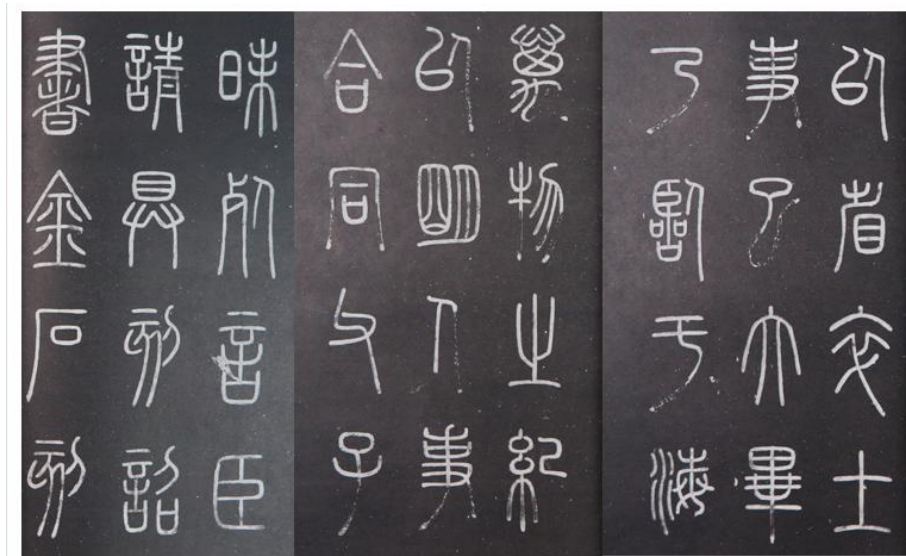 以省卒士
事已大畢
乃臨于海
萬物之紀
以明人事
合同父子
昧死言臣
請具刻詔
書金石刻